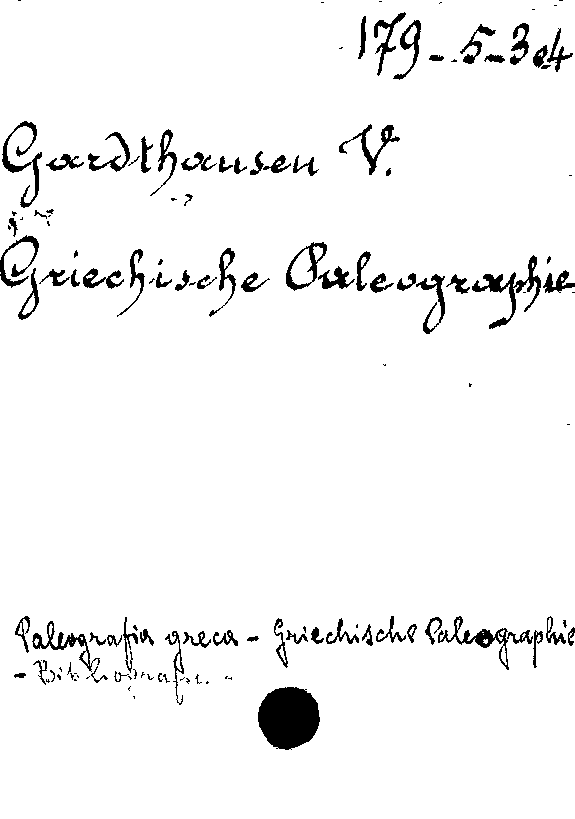 179-5-3e4
Gardthausen V.
Griechische Paleographie
Paleografia greca - Griechische Paleographie
- Bibliografia -